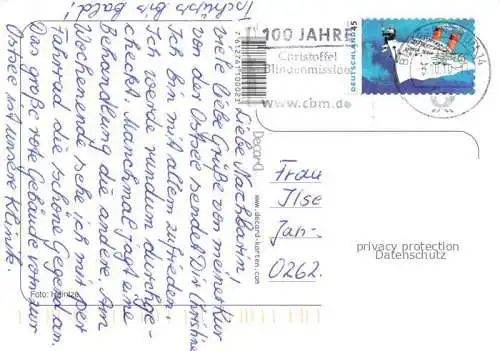 Liebe Nachbarin!
viele liebe Grüße von meiner Kur
von der Ostsee sendet Dir Christine
Ich bin mit allem zufrieden.
Ich werde rundum durchge-
checkt. Manchmal jagt eine
Behandlung die andere. Am
Wochenende sehe ich mir per
Fahrrad die schöne Gegend an.
Das große rote Gebäude vorn zur
Ostsee ist unsere Klinik.
Tschüß bis bald!
Foto: Heintze
DecorD
www.decord-karten.com
100 JAHRE
Christoffel
Blindenmission
www.cbm.de
DEUTSCHLAND 45
Frau
Ilse
Jan-
0262.
privacy protection
Datenschutz